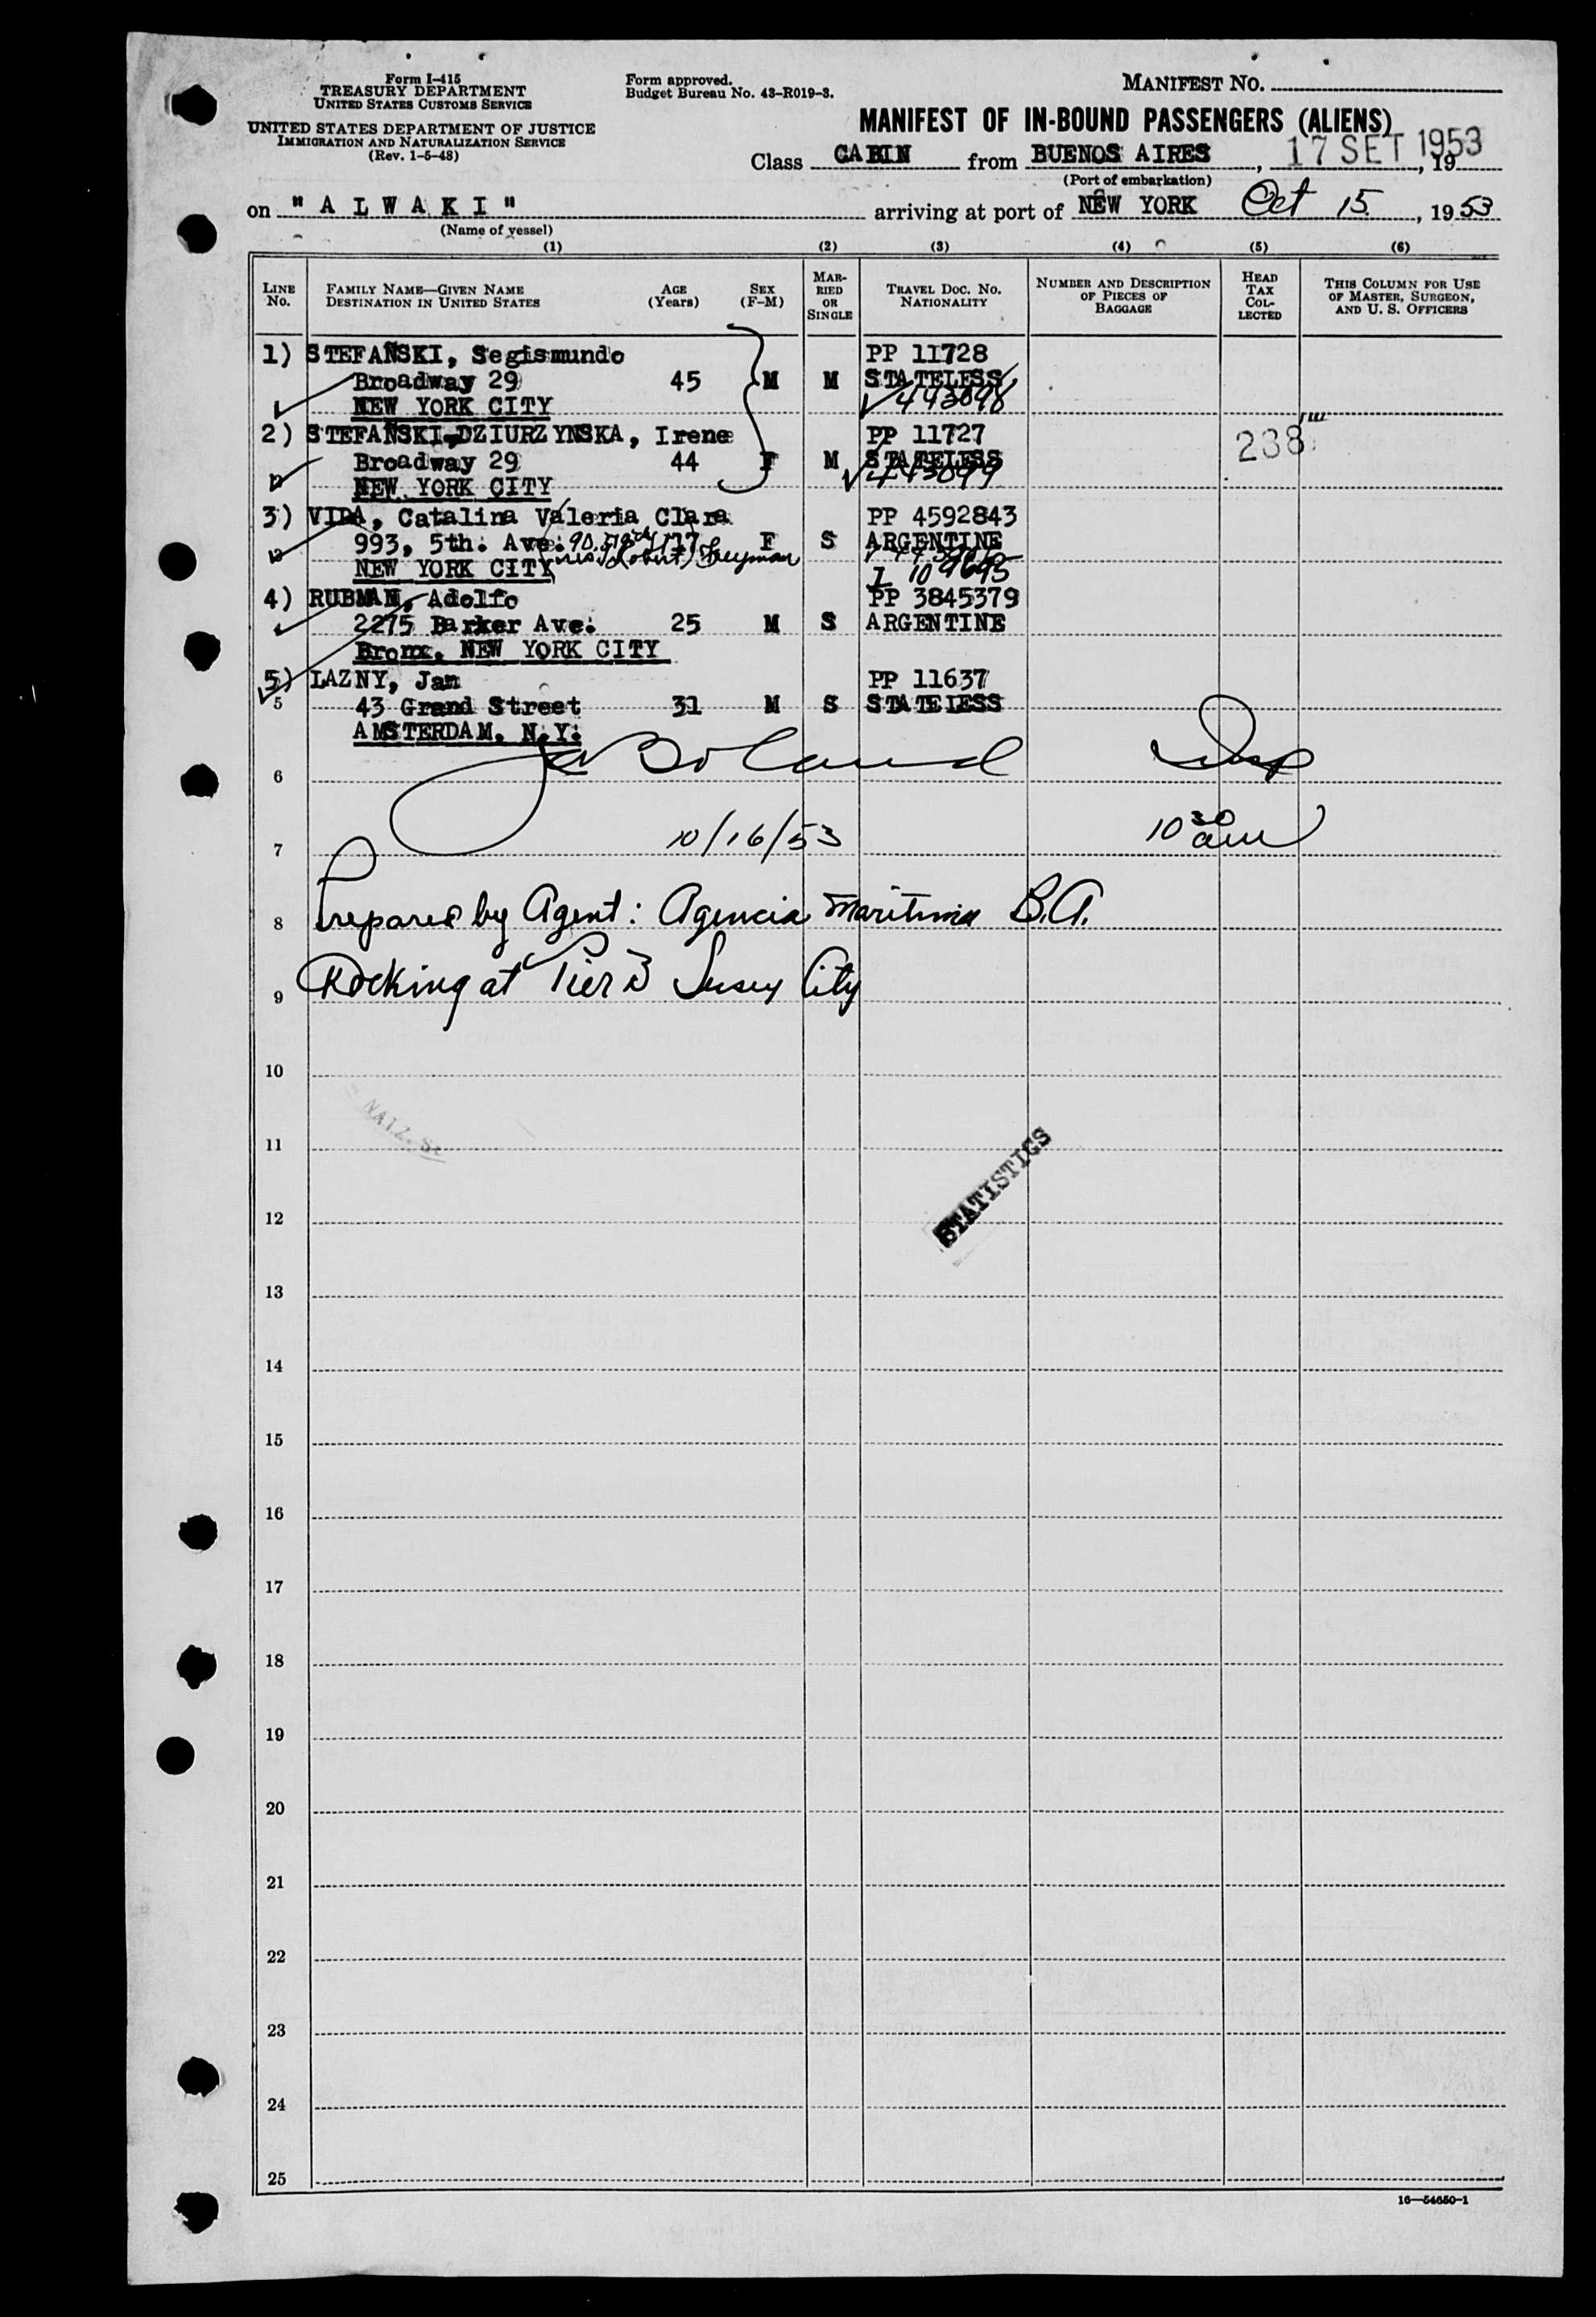 Form I-415
TREASURY DEPARTMENT
UNITED STATES CUSTOMS SERVICE
UNITED STATES DEPARTMENT OF JUSTICE
IMMIGRATION AND NATURALIZATION SERVICE
(Rev. 1-5-48)
Form approved.
Budget Bureau No. 43-R019-3.
MANIFEST NO.
MANIFEST OF IN-BOUND PASSENGERS (ALIENS)
Class CABIN from BUENOS AIRES, 17 SET 1953, 19
(Port of embarkation)
on "ALWAKI" arriving at port of NEW YORK Oct 15, 1953
(Name of vessel)
(1) (2) (3) (4) (5) (6)
LINE No. FAMILY NAME—GIVEN NAME DESTINATION IN UNITED STATES AGE (Years) SEX (F-M) MARRIED OR SINGLE TRAVEL DOC. NO. NATIONALITY NUMBER AND DESCRIPTION OF PIECES OF BAGGAGE HEAD TAX COLLECTED THIS COLUMN FOR USE OF MASTER, SURGEON, AND U. S. OFFICERS
1) STEFAŃSKI, Segismundo PP 11728
Broadway 29 45 M M STATELESS
NEW YORK CITY 443098
2) STEFAŃSKI-DZIURZYNSKA, Irene PP 11727 238
Broadway 29 44 F M STATELESS
NEW YORK CITY 443099
3) VIDA, Catalina Valeria Clara PP 4592843
993, 5th. Ave: 17 F S ARGENTINE
NEW YORK CITY I 109695
4) RUBMAN, Adolfo PP 3845379
2275 Barker Ave: 25 M S ARGENTINE
Bronx, NEW YORK CITY
5) LAZNY, Jan PP 11637
5 43 Grand Street 31 M S STATELESS
AMSTERDAM, N.Y:
Boland Insp
6
10/16/53 10 30 am
7
8 Prepared by Agent: Agencia Maritima B.A.
9 Docking at Pier D Jersey City
10
NATZ. S
11
STATISTICS
12
13
14
15
16
17
18
19
20
21
22
23
24
25
16—54650-1